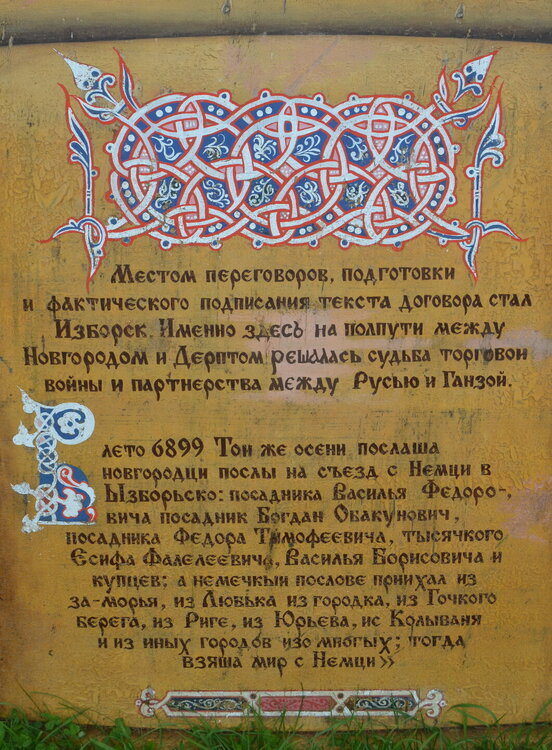 Местом переговоров, подготовки
и фактического подписания текста договора стал
Изборск. Именно здесь на полпути между
Новгородом и Дерптом решалась судьба торговой
войны и партнерства между Русью и Ганзой.
В лето 6899 Той же осени послаша
новгородци послы на съезд с Немци в
Ызборьско: посадника Василья Федоро-,
вича посадник Богдан Обакунович,
посадника Федора Тимофеевича, тысячкого
Есифа Фалелеевича, Василья Борисовича и
купцев; а немечкыи послове приихал из
за-морья, из Любька из городка, из Гочкого
берега, из Риге, из Юрьева, ис Колываня
и из иных городов изо многых; тогда
взяша мир с Немци»